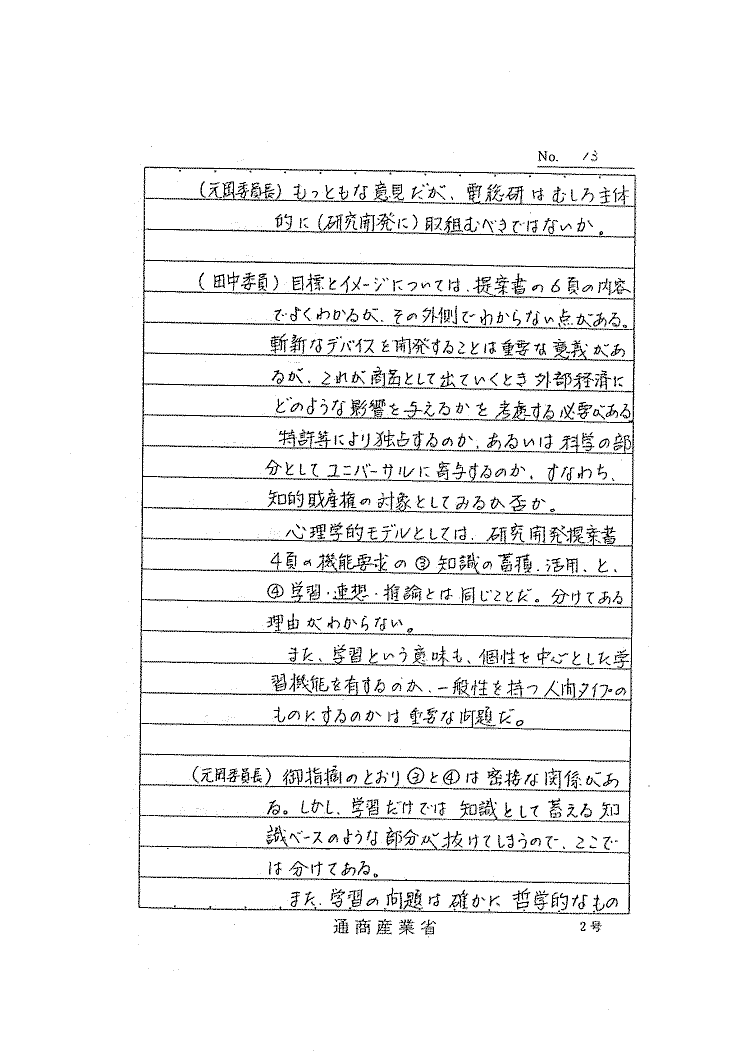 No. 13
(元岡委員長) もっともな意見だが、電総研はむしろ主体
的に(研究開発に)取組むべきではないか。
(田中委員) 目標とイメージについては、提案書の6頁の内容
でよくわかるが、その外側でわからない点がある。
斬新なデバイスを開発することは重要な意義があ
るが、これが商品として出ていくとき外部経済に
どのような影響を与えるかを考慮する必要がある
特許等により独占するのか、あるいは科学の部
分としてユニバーサルに寄与するのか、すなわち、
知的財産権の対象としてみるか否か。
心理学的モデルとしては、研究開発提案書
4頁の機能要求の③知識の蓄積、活用、と、
④学習・連想・推論とは同じことだ。分けてある
理由がわからない。
また、学習という意味も、個性を中心とした学
習機能を有するのか、一般性を持つ人間タイプの
ものにするのかは重要な問題だ。
(元岡委員長) 御指摘のとおり③と④は密接な関係があ
る。しかし、学習だけでは知識として蓄える知
識ベースのような部分が抜けてしまうので、ここで
は分けてある。
また、学習の問題は確かに哲学的なもの
通商産業省 2号